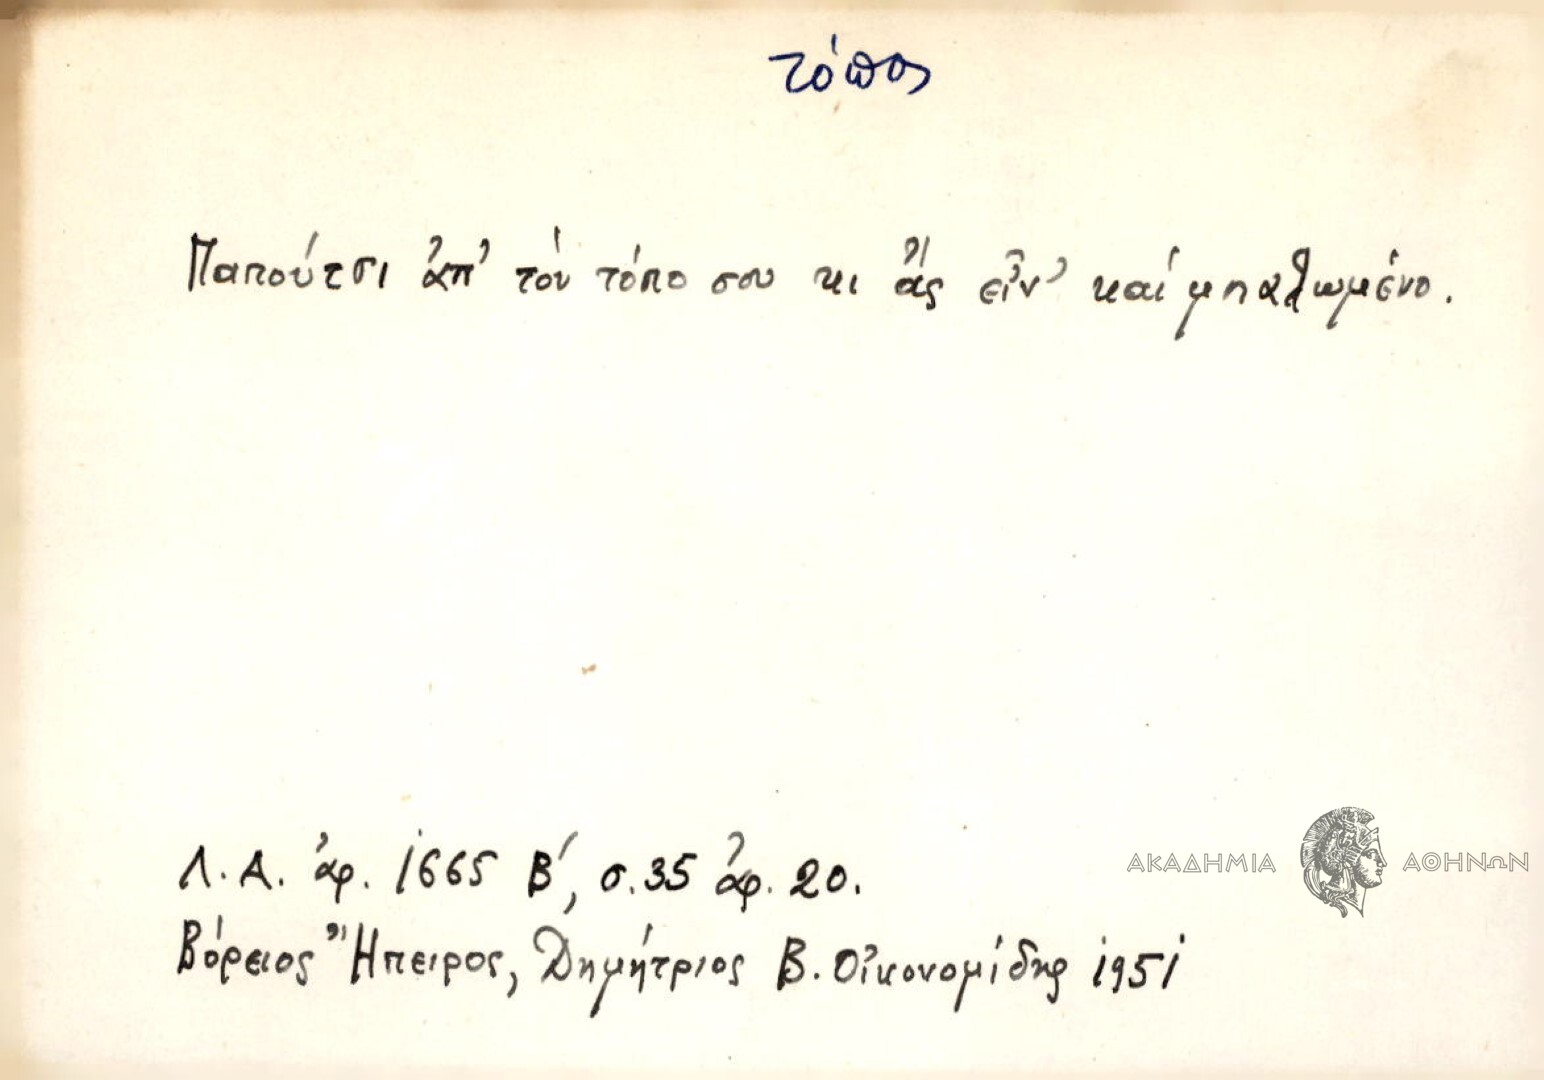 τόπος
Παπούτσι ἀπ' τὸν τόπο σου κι ἄς εἶν' καί μπαλωμένο.
Λ.Α. ἀρ. 1665 Β', σ.35 ἀρ. 20.
ΑΚΑΔΗΜΙΑ ΑΘΗΝΩΝ
Βόρειος Ἤπειρος, Δημήτριος Β. Οἰκονομίδης 1951